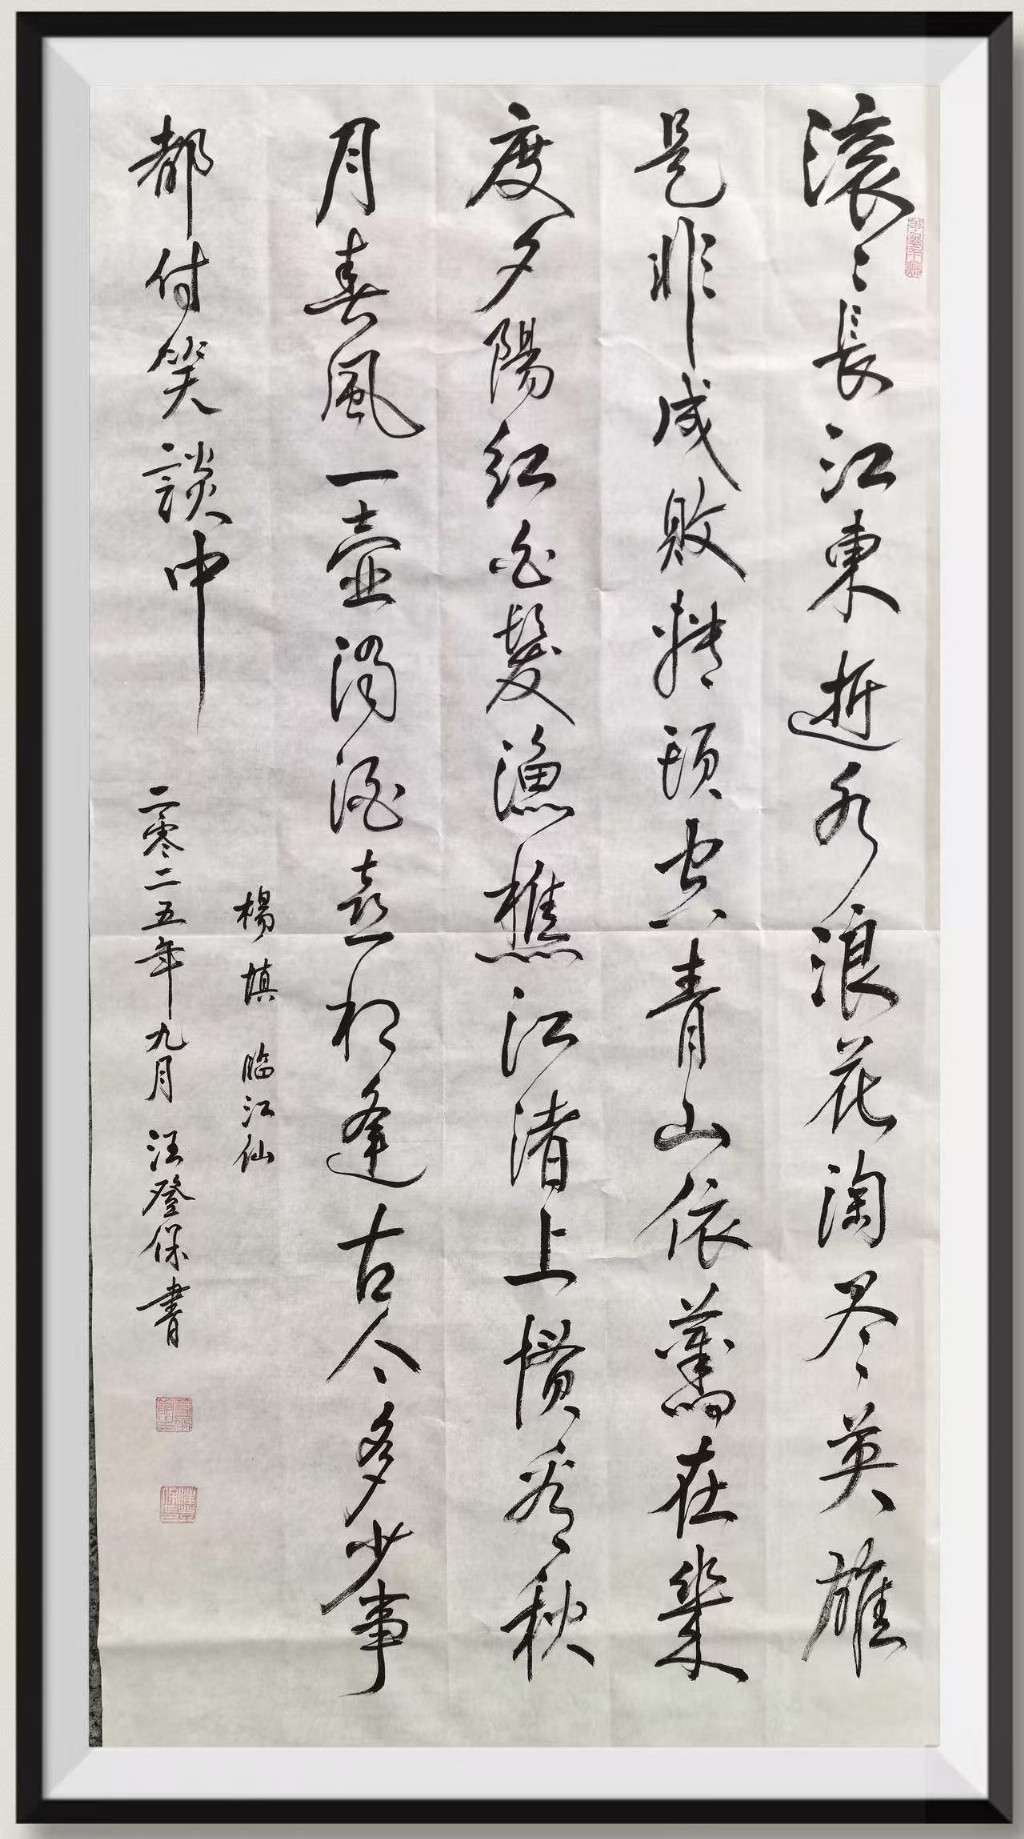 滚〻長江東逝水浪花淘尽英雄
是非成敗轉頭空青山依舊在幾
度夕陽红白髮漁樵江渚上慣看秋
月春風一壺濁酒喜相逢古今多少事
都付笑談中
楊慎 臨江仙
二零二五年九月 汪登保書